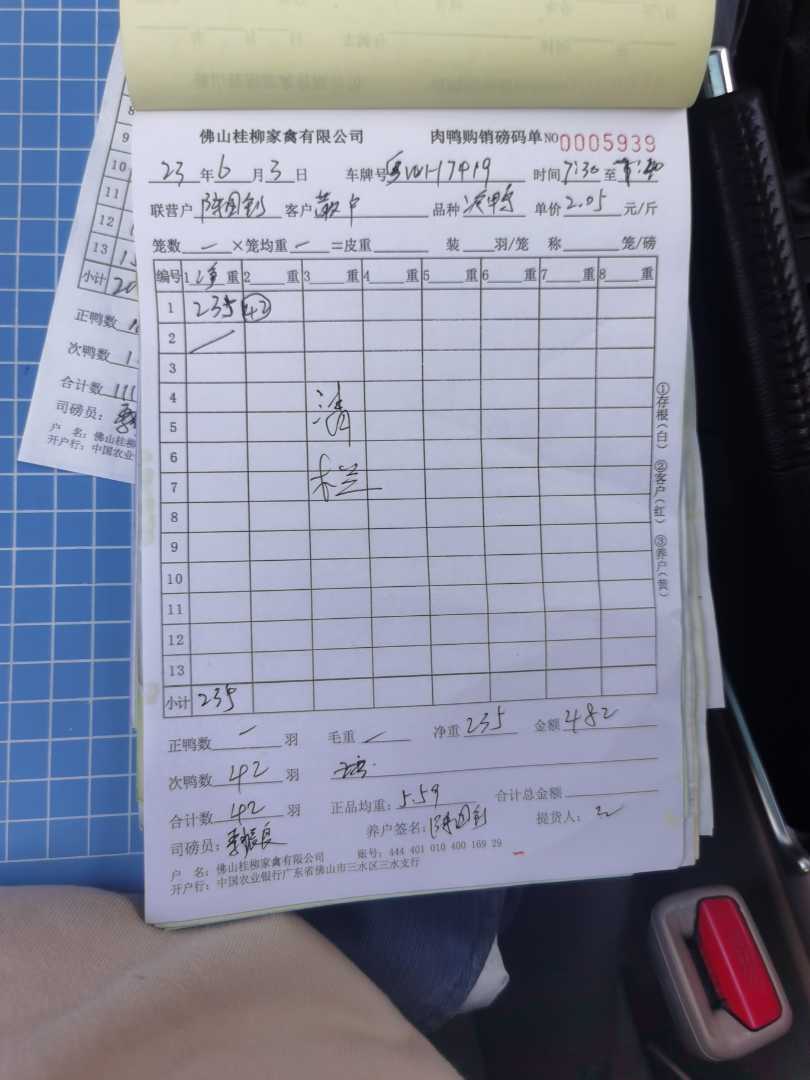 佛山桂柳家禽有限公司 肉鸭购销磅码单 NO 0005939
23 年 6 月 3 日 车牌号 时间 7:30 至
联营户 客户 品种 次鸭 单价 2.05 元/斤
笼数 一 ×笼均重 一 =皮重 装 羽/笼 称 笼/磅
编号 1 净 重 2 重 3 重 4 重 5 重 6 重 7 重 8 重
1 235 42
2
3
4 清
5
6
7 栏
8
9
10
11
12
13
小计 235
正鸭数 一 羽 毛重 一 净重 235 金额 482
次鸭数 42 羽
合计数 42 羽 正品均重: 5.59 合计总金额
司磅员: 养户签名: 提货人:
户 名: 佛山桂柳家禽有限公司 账号: 444 401 010 400 169 29
开户行: 中国农业银行广东省佛山市三水区三水支行
①存根(白) ②客户(红) ③养户(黄)
8
9
10
11
12
13
小计
正鸭数
次鸭数
合计数
司磅员:
户 名: 佛山桂柳
开户行: 中国农业